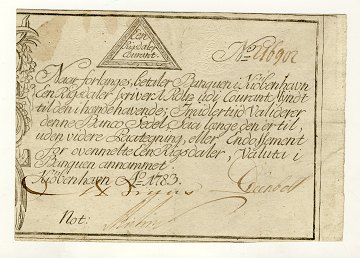 Een
Rigsdaler
Courant.
No
Naar forlanges, betaler Banquen i Kiøbenhavn
Een Rigsdaler skriver 1 Rdlr. udj Courant Mynt
til den i hænde havende; Imidlertiid Validerer
denne Banco Sedel Saa længe den er til,
uden videre Paategning, eller Endossement
for ovenmelte Een Rigsdaler, Valuta i
Banquen annammet.
Kiøbenhavn Ao. 1783.
Not: